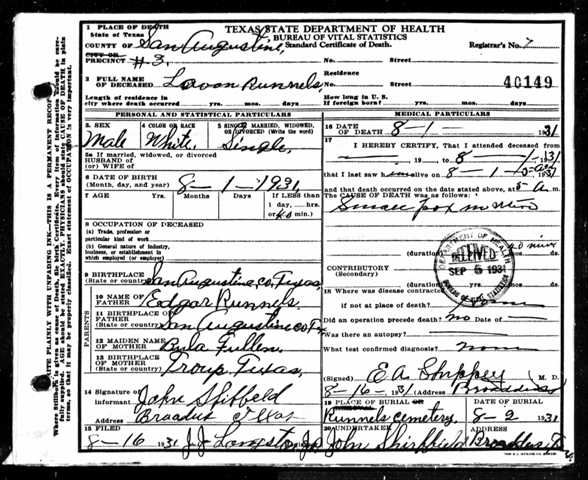 1 PLACE OF DEATH
State of Texas
TEXAS STATE DEPARTMENT OF HEALTH
BUREAU OF VITAL STATISTICS
COUNTY OF San Augustine,
Standard Certificate of Death.
Registrar's No. 7
CITY OR
PRECINCT #3,
No. Street
2 FULL NAME OF DECEASED Lavon Runnels,
Residence
No. Street
40149
Length of residence in city where death occurred yrs. mos. days.
How long in U. S. If foreign born? yrs. mos. days
PERSONAL AND STATISTICAL PARTICULARS
3 SEX Male
4 COLOR OR RACE White
5 SINGLE, MARRIED, WIDOWED, OR DIVORCED (Write the word) Single,
5a If married, widowed, or divorced
HUSBAND OF
(or) WIFE OF
6 DATE OF BIRTH
(Month, day, and year) 8-1-1931,
7 AGE Yrs. Months Days If LESS than
1 day, hrs.
or 40 min.)
8 OCCUPATION OF DECEASED
(a) Trade, profession or
particular kind of work
(b) General nature of industry,
business, or establishment in
which employed (or employer)
9 BIRTHPLACE
(State or country) San Augustine co, Texas,
PARENTS
10 NAME OF FATHER Edgar Runnels,
11 BIRTHPLACE OF FATHER
(State or country) San Augustine co Tx
12 MAIDEN NAME OF MOTHER Eula Fullen.
13 BIRTHPLACE OF MOTHER
(State or country) Troup Texas,
14 Signature of
informant
Address Broaddus Texas
15 FILED
8-16 1931
MEDICAL PARTICULARS
16 DATE OF DEATH 8-1- 1931
17
I HEREBY CERTIFY, That I attended deceased
from 19 to 8-1- 1931
that I last saw him alive on 8-1-
and that death occurred on the date stated above at 5 a m.
The CAUSE OF DEATH was as follows:
(duration) yrs. mos. 40 min ds.
CONTRIBUTORY
(Secondary)
(duration) yrs. mos. ds.
DEPARTMENT OF HEALTH
RECEIVED
SEP 5 1931
BUREAU OF VITAL STATISTICS
18 Where was disease contracted
if not at place of death?
Did an operation precede death? no Date of —
Was there an autopsy?
What test confirmed diagnosis? none
(Signed) M. D.
8-16-1931 (Address) Broaddus
19 PLACE OF BURIAL DATE OF BURIAL
Runnels cemetery, 8-2 1931
20 UNDERTAKER ADDRESS
John Broaddus Tx